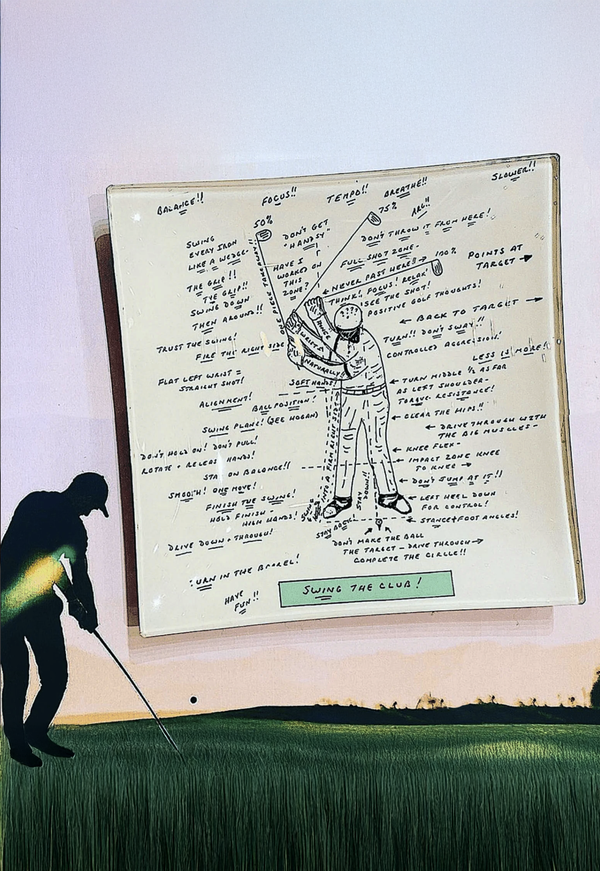 BALANCE!!
FOCUS!!
TEMPO!!
BREATHE!!
SLOWER!!
50%
75%
ARG!!
SWING
EVERY IRON
LIKE A WEDGE-
DON'T GET
"HANDSY"
DON'T THROW IT FROM HERE!
THE GRIP!!
THE GRIP!!
SWING DOWN
THEN AROUND!!
ONE PIECE TAKEAWAY!!
HAVE I
WORKED ON
THIS
ZONE?
FULL SHOT ZONE-
100%
← NEVER PAST HERE? →
THINK! FOCUS! RELAX!
SEE THE SHOT!
POSITIVE GOLF THOUGHTS!
POINTS AT
TARGET →
← BACK TO TARGET →
TRUST THE SWING!
FIRE THE RIGHT SIDE
TURN!! DON'T SWAY!!
CONTROLLED AGGRESSION!
LESS IS MORE!
HINGE
WRISTS
NATURALLY
FLAT LEFT WRIST =
STRAIGHT SHOT!
SOFT HANDS!
← TURN MIDDLE ½ AS FAR
AS LEFT SHOULDER-
TORQUE. RESISTANCE!
ALIGNMENT!
BALL POSITION!
← CLEAR THE HIPS!!
SWING PLANE! (SEE HOGAN)
← DRIVE THROUGH WITH
THE BIG MUSCLES-
DON'T HOLD ON! DON'T PULL!
ROTATE + RELEASE HANDS!
← KNEE FLEX-
← IMPACT ZONE KNEE
TO KNEE →
STAY ON BALANCE!!
← DON'T JUMP AT IT!!
SMOOTH! ONE MOVE!
FINISH THE SWING!
HOLD FINISH -
HIGH HANDS!
INTO A FIRM RIGHT SIDE
STAY
DOWN!!
← LEFT HEEL DOWN
FOR CONTROL!
STAY BACK!
← STANCE + FOOT ANGLES!
DRIVE DOWN + THROUGH!
DON'T MAKE THE BALL
THE TARGET - DRIVE THROUGH →
COMPLETE THE CIRCLE!!
TURN IN THE BARREL!
HAVE
FUN!!
SWING THE CLUB!